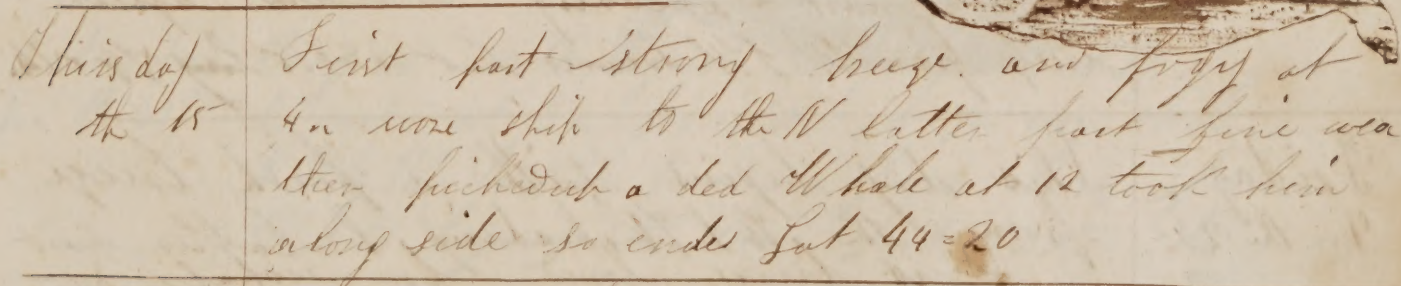 Thirsday First part strong breeze. and fogy at
th 15 4 wore ship to the N latter part fine wea
ther pickedub a ded Whale at 12 took him
along side so ends Lat 44=20